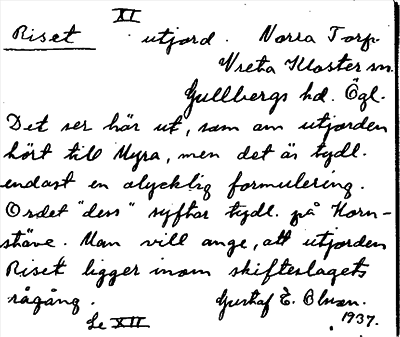 XI
Riset utjord. Norra Torp.
Vreta Kloster sn.
Gullbergs hd. Ögl.
Det ser här ut, som om utjorden
hört till Myra, men det är tydl.
endast en olycklig formulering.
Ordet "dess" syftar tydl. på Korn-
stäve. Man vill ange, att utjorden
Riset ligger inom skifteslagets
rågång. Gustaf E. Olsson.
Se XII 1937.